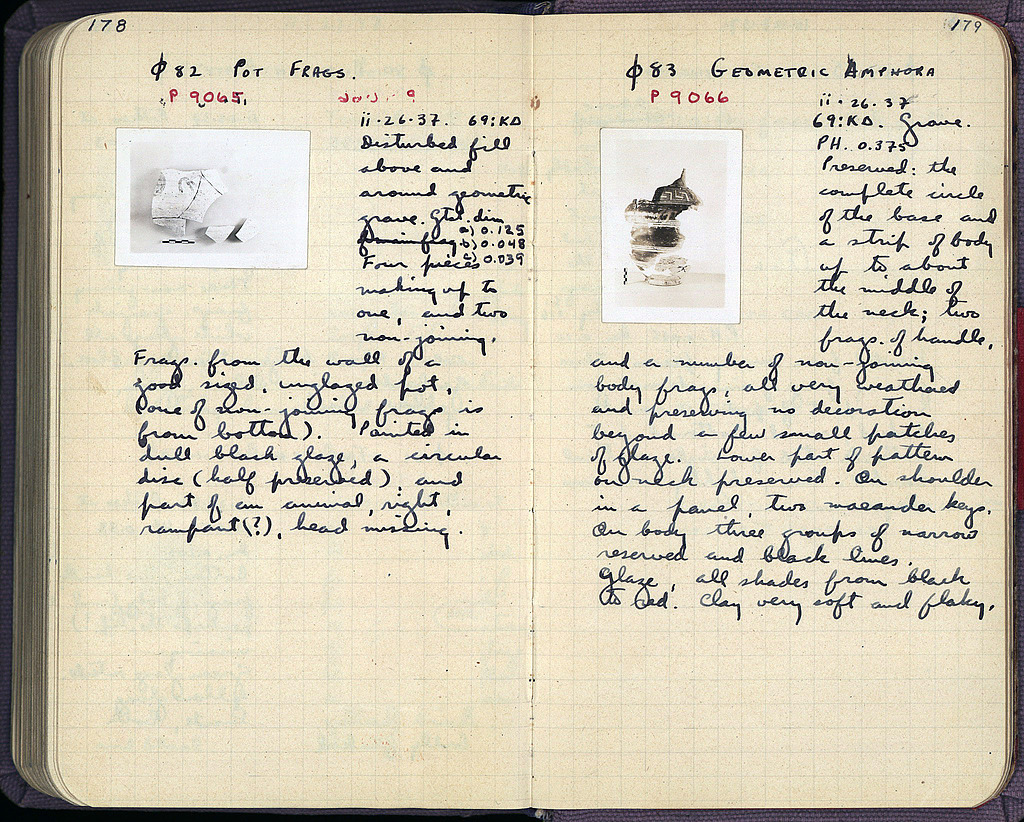 178
φ 82 POT FRAGS.
P 9065.
ii·26·37. 69:KΔ
Disturbed fill
above and
around geometric
grave. Gtst. dim.
a) 0.125
b) 0.048
c) 0.039
Four pieces
making up to
one, and two
non-joining.
Frags. from the wall of a
good sized, unglazed pot,
(one of non-joining frags is
from bottom). Painted in
dull black glaze, a circular
disc (half preserved), and
part of an animal, right,
rampant(?), head missing.
179
φ 83 GEOMETRIC AMPHORA
P 9066
ii·26·37
69:KΔ. Grave.
PH. 0.375
Preserved: the
complete circle
of the base and
a strip of body
up to about
the middle of
the neck; two
frags. of handle,
and a number of non-joining
body frags, all very weathered
and preserving no decoration
beyond a few small patches
of glaze. Lower part of pattern
on neck preserved. On shoulder
in a panel, two maeander keys.
On body three groups of narrow
reserved and black lines.
Glaze, all shades from black
to red. Clay very soft and flaky.